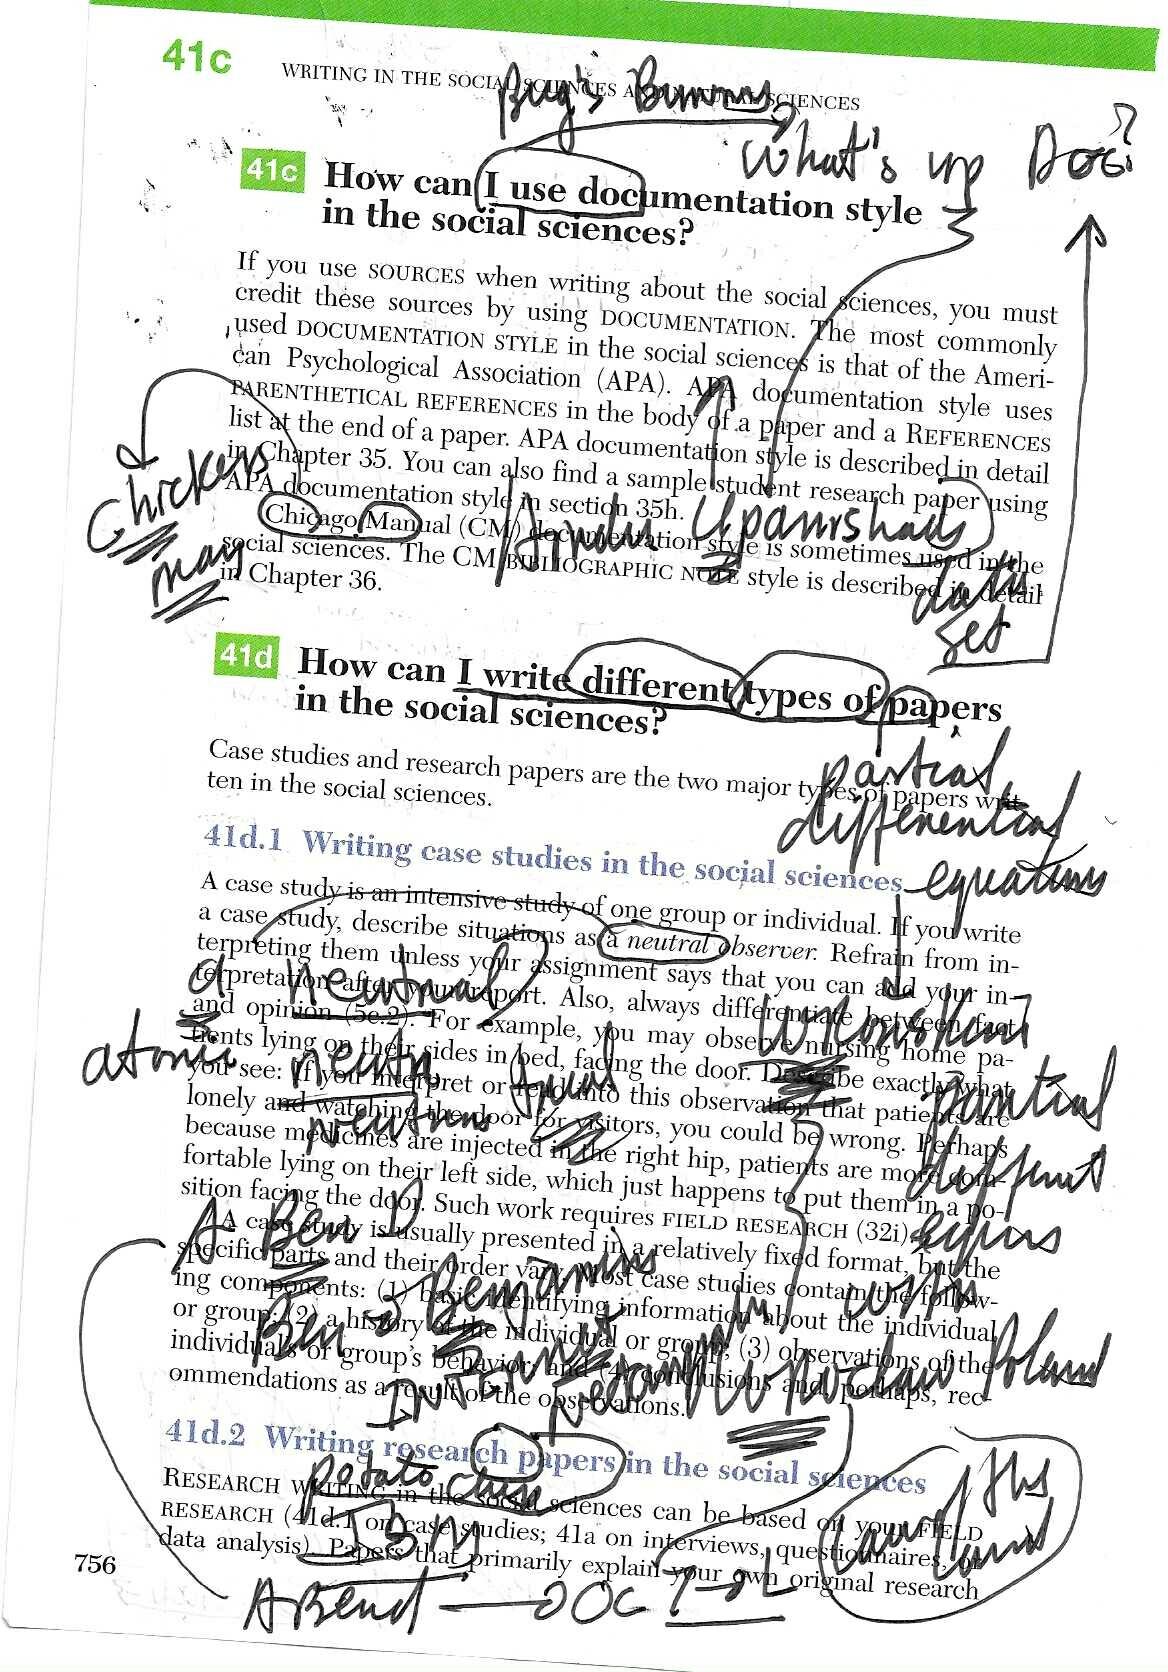 41c
WRITING IN THE SOCIAL SCIENCES AND NATURAL SCIENCES
Bug's Bunnys
What's up DOC?
41c How can I use documentation style
in the social sciences?
If you use SOURCES when writing about the social sciences, you must
credit these sources by using DOCUMENTATION. The most commonly
used DOCUMENTATION STYLE in the social sciences is that of the Ameri-
can Psychological Association (APA). APA documentation style uses
PARENTHETICAL REFERENCES in the body of a paper and a REFERENCES
list at the end of a paper. APA documentation style is described in detail
in Chapter 35. You can also find a sample student research paper using
APA documentation style in section 35h.
Chicago Manual (CM) documentation style is sometimes used in the
social sciences. The CM BIBLIOGRAPHIC NOTE style is described in detail
in Chapter 36.
Chickens
may
Hindu Upanishads
data
set
41d How can I write different types of papers
in the social sciences?
Case studies and research papers are the two major types of papers writ-
ten in the social sciences.
partial
differential
equations
41d.1 Writing case studies in the social sciences
A case study is an intensive study of one group or individual. If you write
a case study, describe situations as a neutral observer. Refrain from in-
terpreting them unless your assignment says that you can add your in-
terpretation after your report. Also, always differentiate between fact
and opinion (5e.2). For example, you may observe nursing home pa-
tients lying on their sides in bed, facing the door. Describe exactly what
you see: If you interpret or read into this observation that patients are
lonely and watching the door for visitors, you could be wrong. Perhaps
because medicines are injected in the right hip, patients are more com-
fortable lying on their left side, which just happens to put them in a po-
sition facing the door. Such work requires FIELD RESEARCH (32i).
A case study is usually presented in a relatively fixed format, but the
specific parts and their order vary. Most case studies contain the follow-
ing components: (1) basic identifying information about the individual
or group; (2) a history of the individual or group; (3) observations of the
individual's or group's behavior; and (4) conclusions and, perhaps, rec-
ommendations as a result of the observations.
a neutral
atomic neutn
neutrons
A Ben D
Ben Benjamins
in Wroclaw Poland
41d.2 Writing research papers in the social sciences
RESEARCH WRITING in the social sciences can be based on your FIELD
RESEARCH (41d.1 on case studies; 41a on interviews, questionnaires, or
data analysis). Papers that primarily explain your own original research
potato chip
IBM
Law of the
land
756
ABend DOC